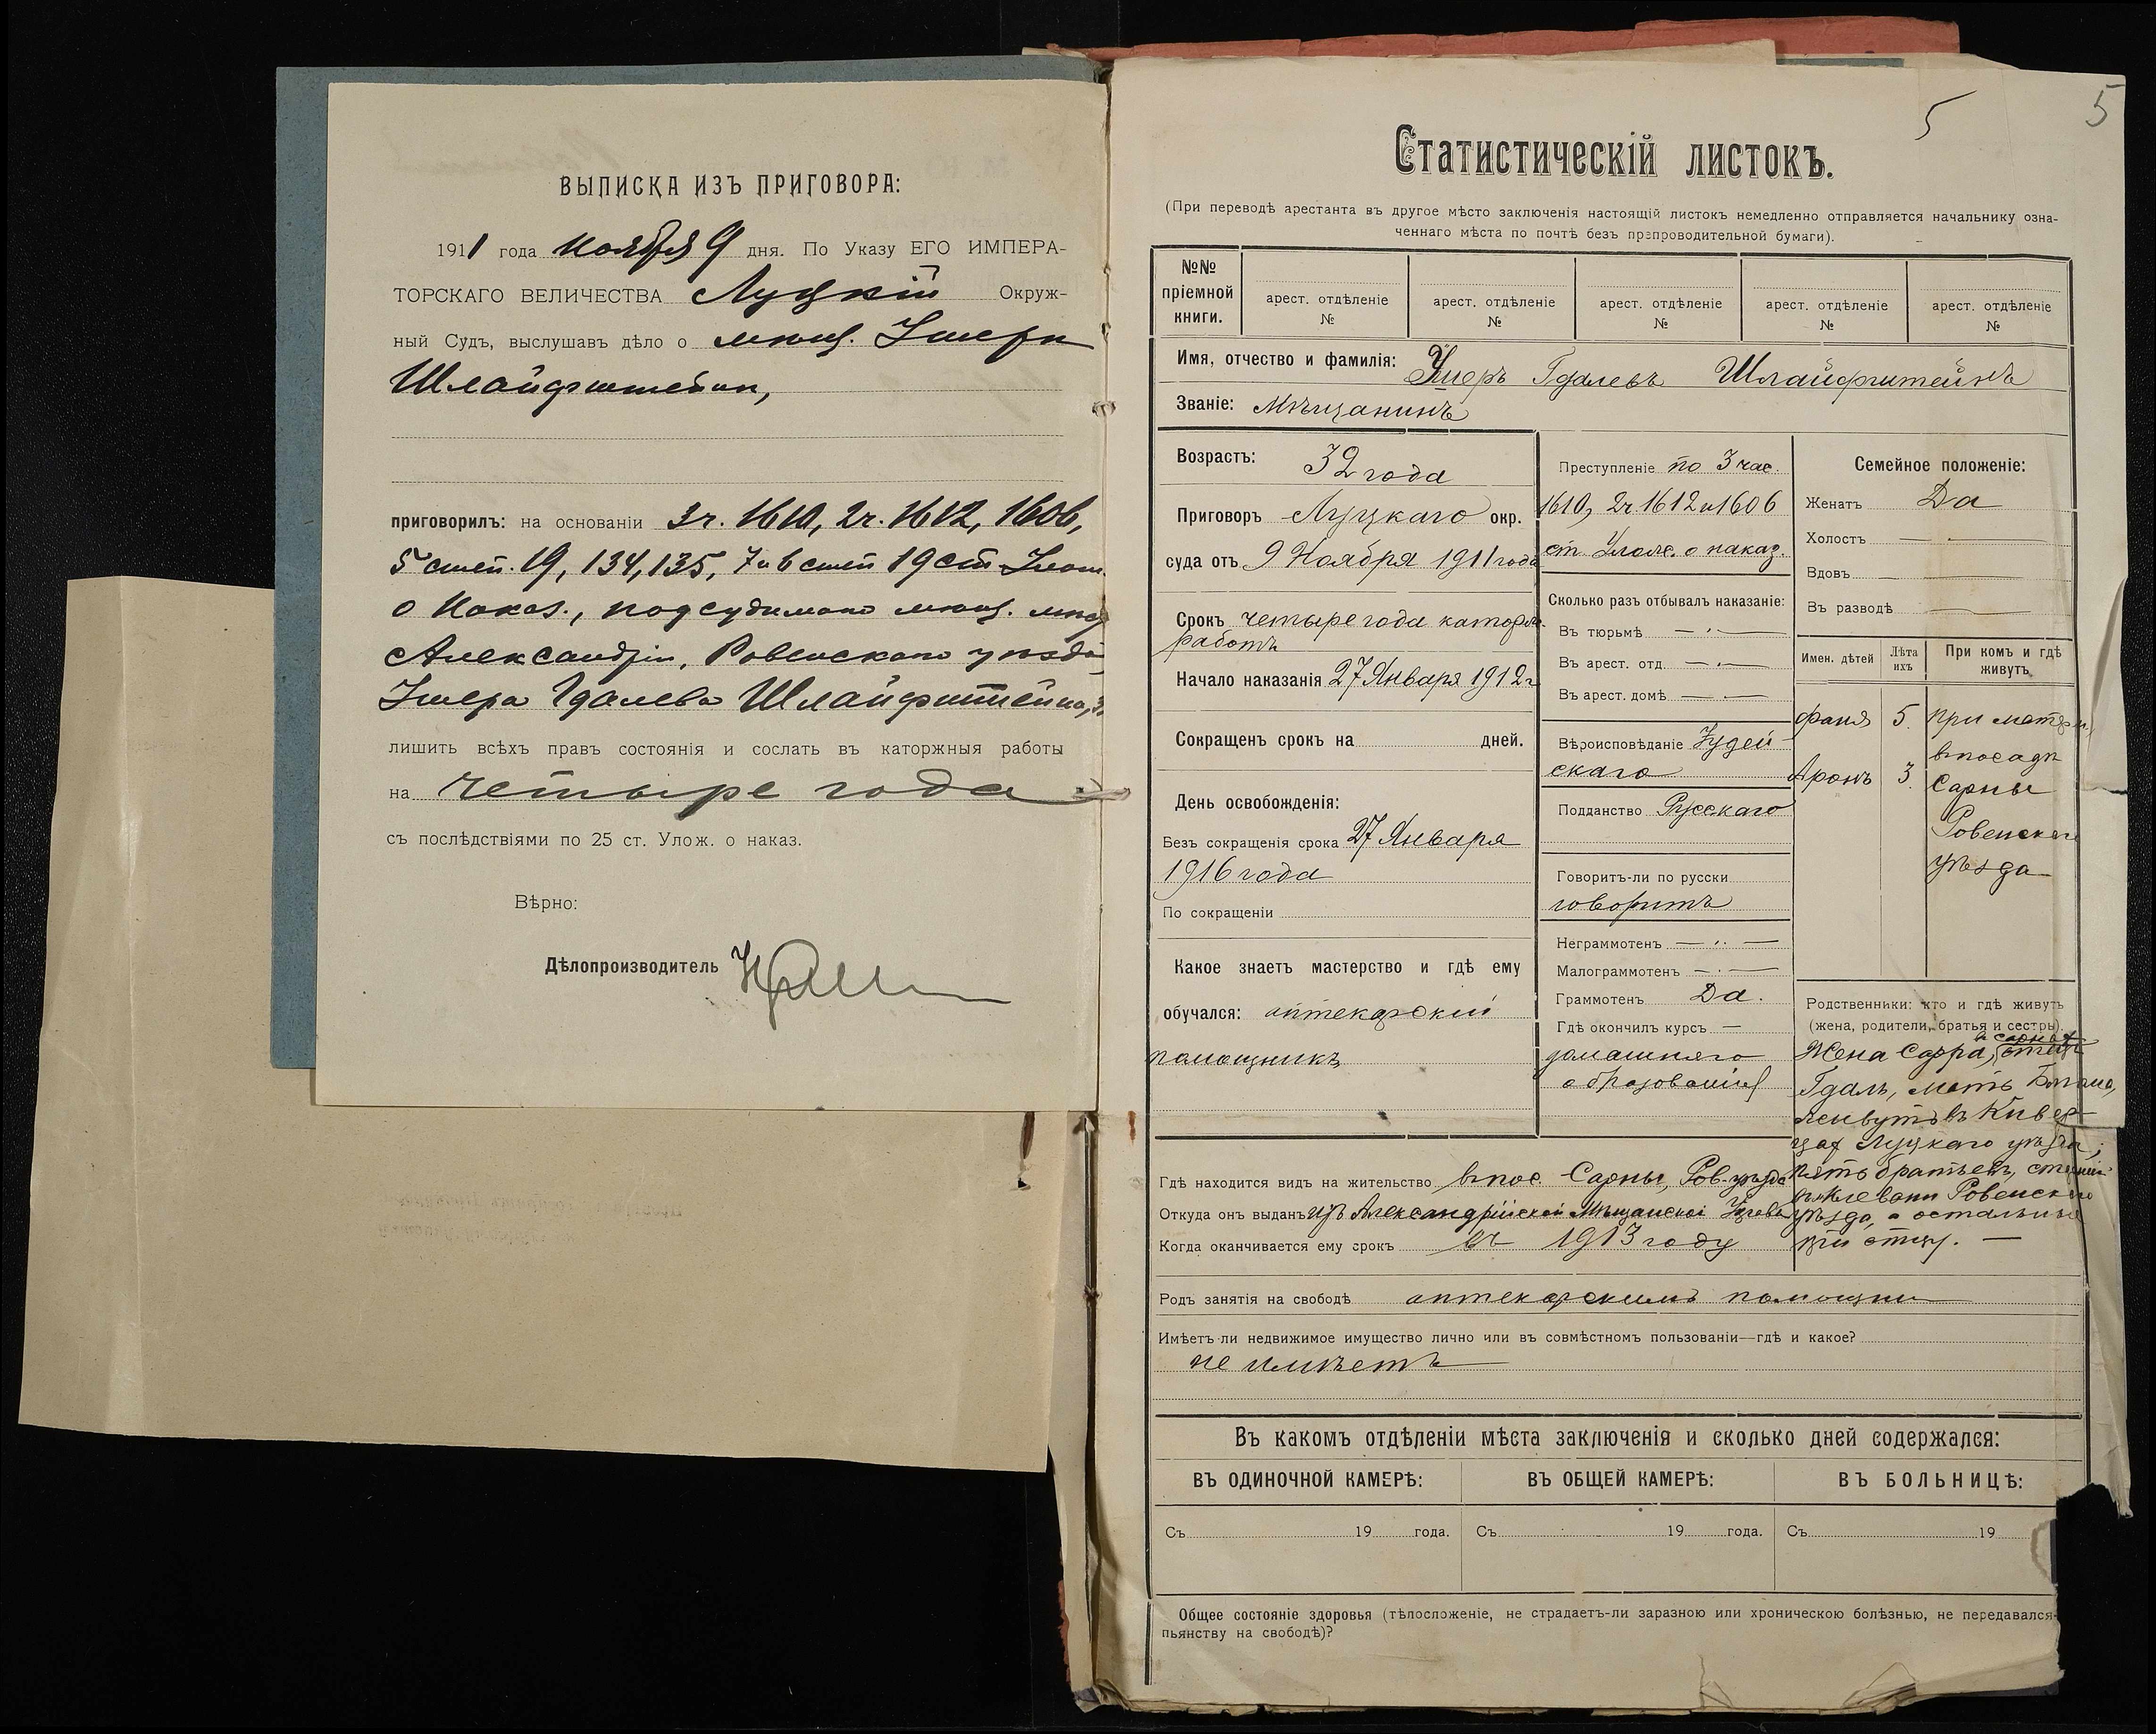 ВЫПИСКА ИЗЪ ПРИГОВОРА:
1911 года ноября 9 дня. По Указу ЕГО ИМПЕРА-
ТОРСКАГО ВЕЛИЧЕСТВА Луцкій Окруж-
ный Судъ, выслушавъ дѣло о мѣщ. Ушерѣ
Шлайфштейнѣ,
приговорилъ: на основаніи 3 ч. 1610, 2 ч. 1612, 1606,
5 степ. 19, 134, 135, 7 и 6 степ 19 ст Улож.
о Наказ., подсудимаго мѣщ. мѣст
Александріи, Ровенскаго уѣзда
Ушера Гдалева Шлайфштейна,
лишить всѣхъ правъ состоянія и сослать въ каторжныя работы
на четыре года
съ послѣдствіями по 25 ст. Улож. о наказ.
Вѣрно:
Дѣлопроизводитель
5
5
Статистическій листокъ.
(При переводѣ арестанта въ другое мѣсто заключенія настоящій листокъ немедленно отправляется начальнику озна-
ченнаго мѣста по почтѣ безъ препроводительной бумаги).
№№ пріемной книги.
арест. отдѣленіе №
арест. отдѣленіе №
арест. отдѣленіе №
арест. отдѣленіе №
арест. отдѣленіе №
Имя, отчество и фамилія: Ушеръ Гдалевъ Шлайфштейнъ
Званіе: Мѣщанинъ
Возрастъ: 32 года
Приговоръ Луцкаго окр.
суда отъ 9 Ноября 1911 года
Срокъ четыре года каторж.
работъ
Начало наказанія 27 Января 1912 г
Сокращенъ срокъ на дней.
День освобожденія:
Безъ сокращенія срока 27 Января
1916 года
По сокращеніи
Какое знаетъ мастерство и гдѣ ему
обучался: аптекарскій
помощникъ
Преступленіе по 3 час.
1610, 2 ч 1612 и 1606
ст. Улож. о наказ.
Сколько разъ отбывалъ наказаніе:
Въ тюрьмѣ
Въ арест. отд.
Въ арест. домѣ
Вѣроисповѣданіе Іудей
скаго
Подданство Русскаго
Говоритъ-ли по русски
говоритъ
Неграммотенъ
Малограммотенъ
Граммотенъ Да.
Гдѣ окончилъ курсъ —
домашняго
образованія
Семейное положеніе:
Женатъ Да
Холостъ
Вдовъ
Въ разводѣ
Имен. дѣтей Лѣта ихъ При комъ и гдѣ живутъ
Фаня 5 при матери
въ посадѣ
Аронъ 3 Сарны
Ровенскаго
уѣзда
Родственники: кто и гдѣ живутъ
(жена, родители, братья и сестры).
Жена Сарра, въ Сарнах отецъ
Гдаль, мать
живутъ въ Кивер
цах Луцкаго уѣзда;
пять братьевъ, старшій
въ Клевани Ровенскаго
уѣзда, а остальные
при отцѣ. —
Гдѣ находится видъ на жительство въ пос. Сарны, Ров. уѣзда
Откуда онъ выданъ изъ Александрійской Мѣщанской Управы
Когда оканчивается ему срокъ въ 1913 году
Родъ занятія на свободѣ аптекарскимъ помощни
Имѣетъ-ли недвижимое имущество лично или въ совмѣстномъ пользованіи—гдѣ и какое?
не имѣетъ
Въ какомъ отдѣленіи мѣста заключенія и сколько дней содержался:
ВЪ ОДИНОЧНОЙ КАМЕРѢ: ВЪ ОБЩЕЙ КАМЕРѢ: ВЪ БОЛЬНИЦѢ:
Съ 19 года. Съ 19 года. Съ 19
Общее состояніе здоровья (тѣлосложеніе, не страдаетъ-ли заразною или хроническою болѣзнью, не передавался-
пьянству на свободѣ)?